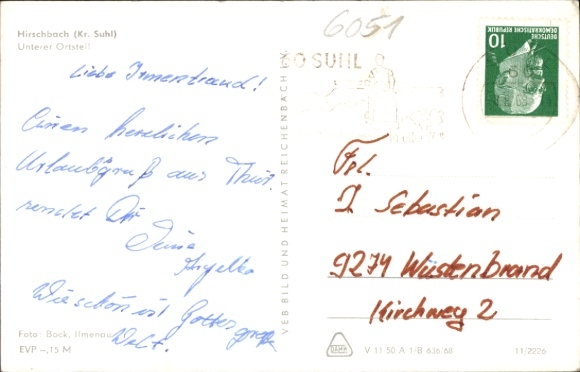 Hirschbach (Kr. Suhl)
Unterer Ortsteil
6051
60 SUHL
DEUTSCHE
DEMOKRATISCHE REPUBLIK
10
Liebe Irmenstraud!
Einen herzlichen
Urlaubsgruß aus Thür.
sendet Dir
Deine
Angelka
Wie schön ist Gottes große
Welt.
Frl.
I Sebastian
9274 Wüstenbrand
Kirchweg 2
VEB BILD UND HEIMAT REICHENBACH
Foto: Bock, Ilmenau
EVP –,15 M
V 11 50 A 1/B 636/68
11/2226